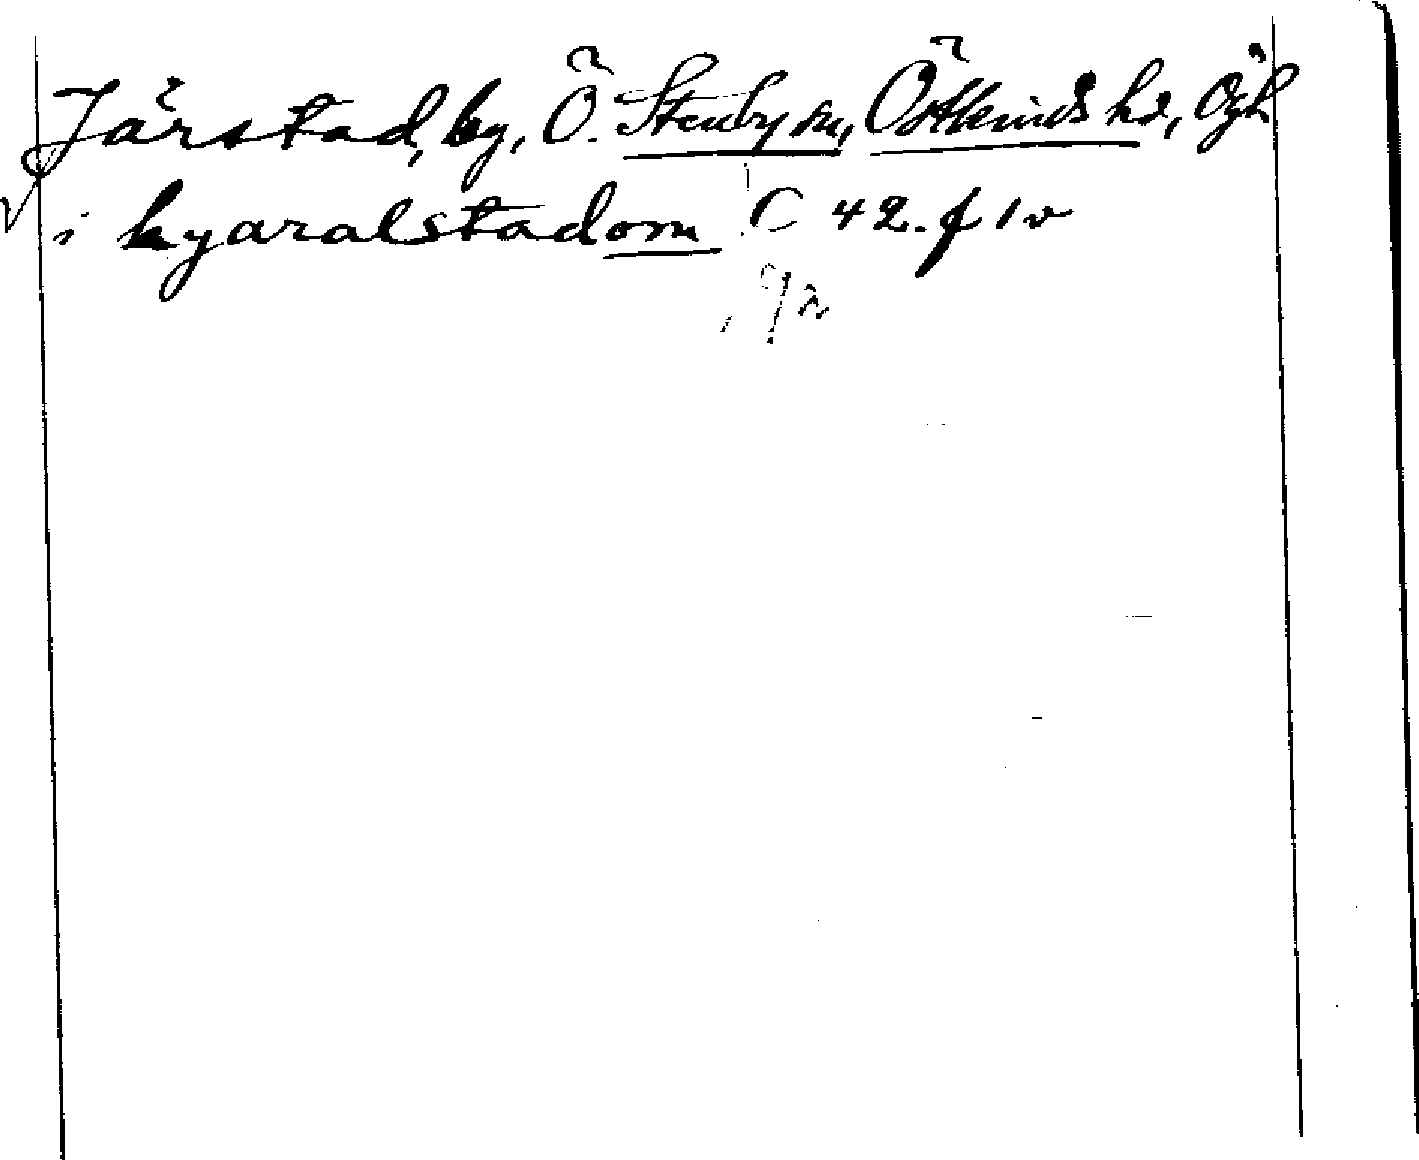 Järstad, by, Ö. Stenby sn, Östkinds hd, Ögl
i hyaralstadom C 42. f 1 v